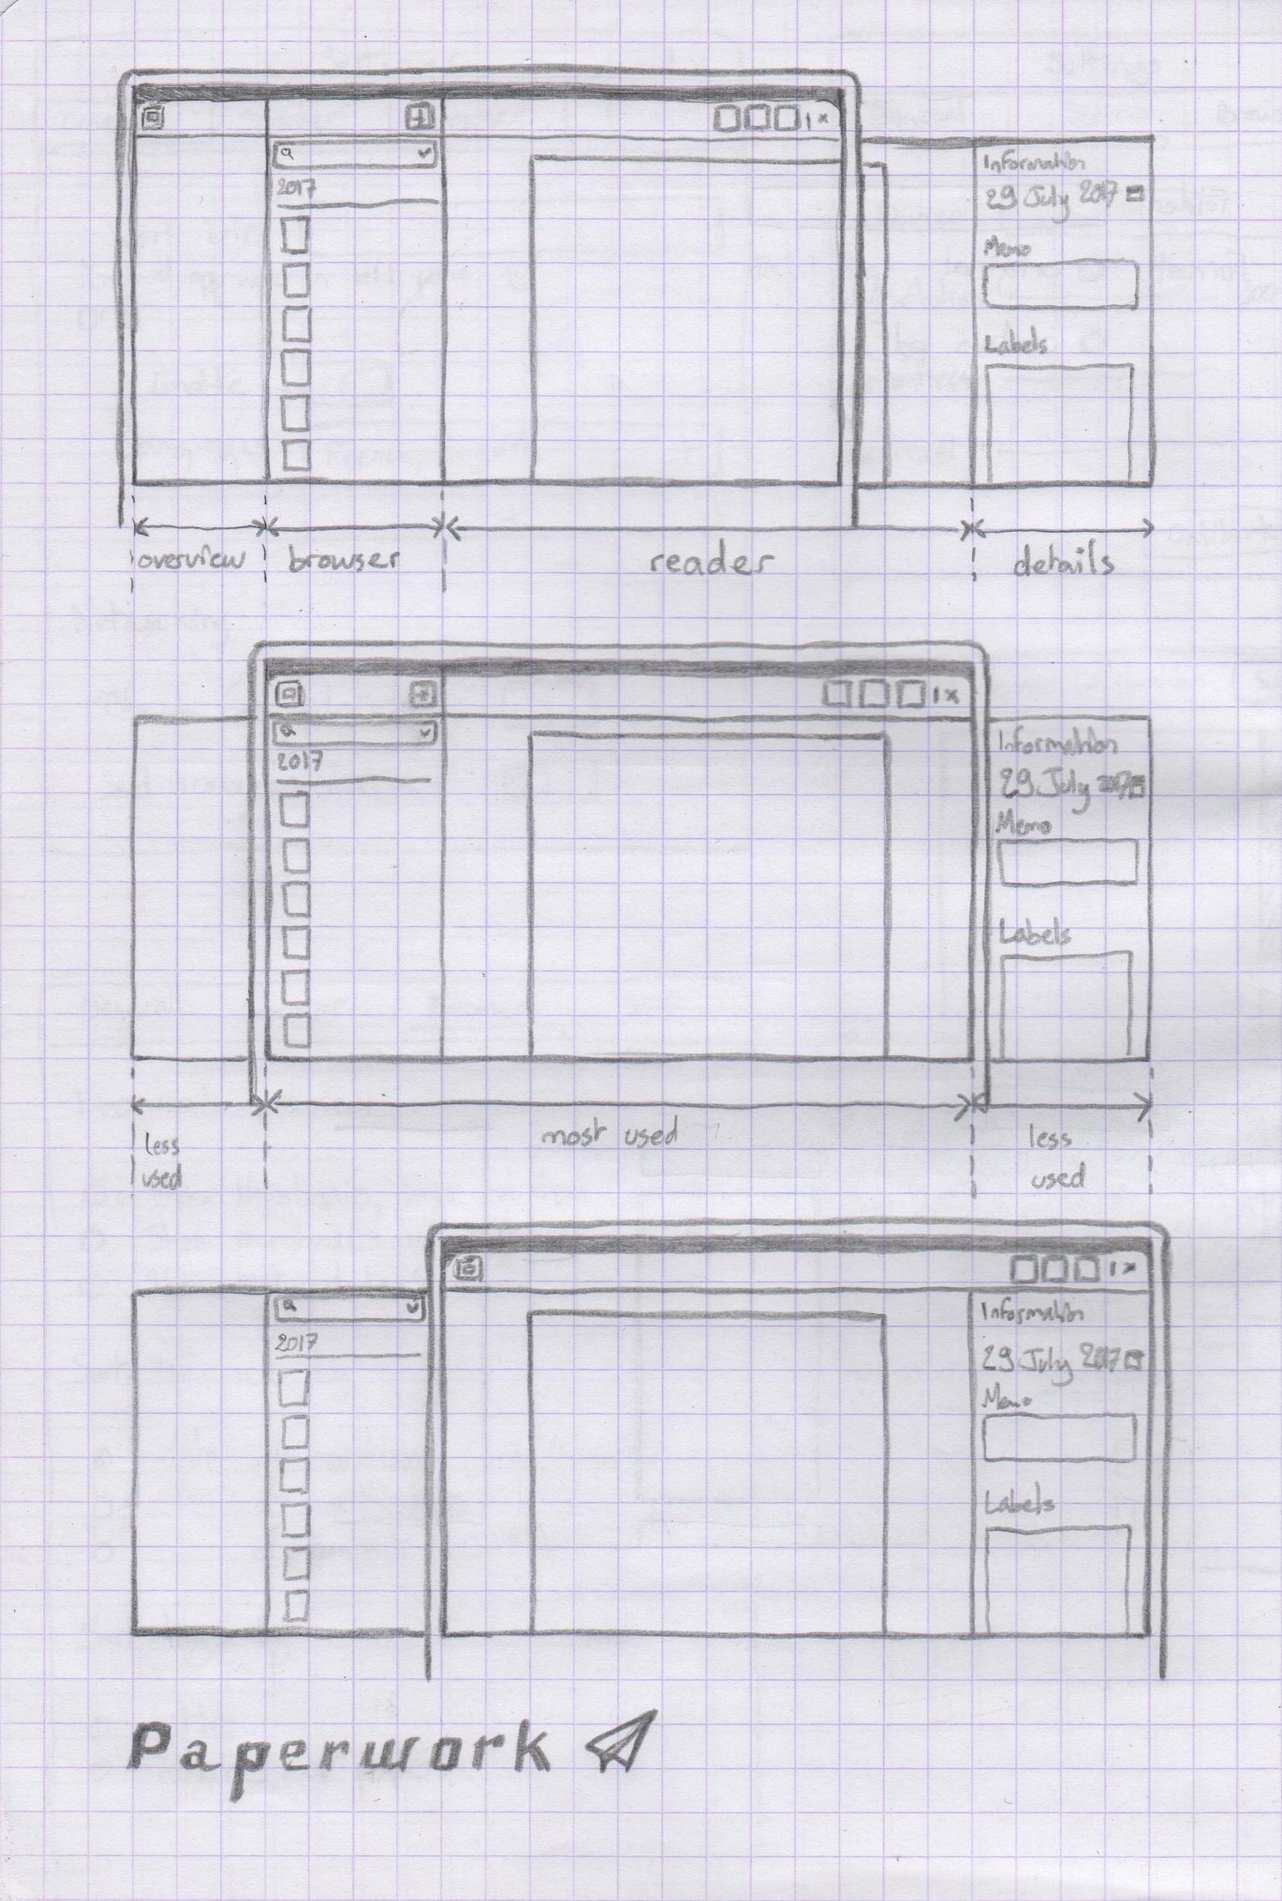 Information
2017
29 July 2017
Memo
Labels
overview browser reader details
Information
2017
29 July 2017
Memo
Labels
less used
most used
less used
Information
2017
29 July 2017
Memo
Labels
Paperwork